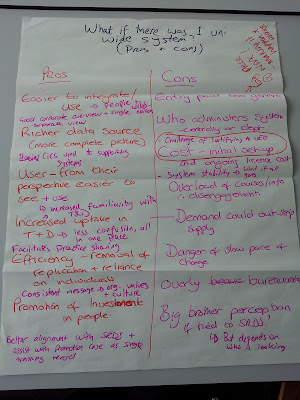 What if there was 1 uni
wide system?
(Pros + cons)
Pros
Easier to integrate/
use → people
Good corporate overview + single
corporate view
Richer data source
(more complete picture)
CICs used + supporting
systems
User - from their
perspective easier to
see + use
↳ increased familiarity with
Increased uptake in
T + D → less confusion, all
in one place
Facilitates practice sharing
Efficiency - removal of
replication + reliance
on individuals
Consistent message → org. values
+ culture
Promotion of Investment
in people.
Better alignment with SRDS +
assist with promotion case as single
training record
Cons
Entry point
Who administers system
- centrally or dept.
Challenge of identifying a
Cost - initial set-up
and ongoing licence cost
- System stability → what if it fails
Overload of courses/info
∴ disengagement
Demand could outstrip
supply
Danger of slow pace of
change
Overly bureaucratic
Big brother perception
if tied to SRDS,
↳ But depends on
who is looking